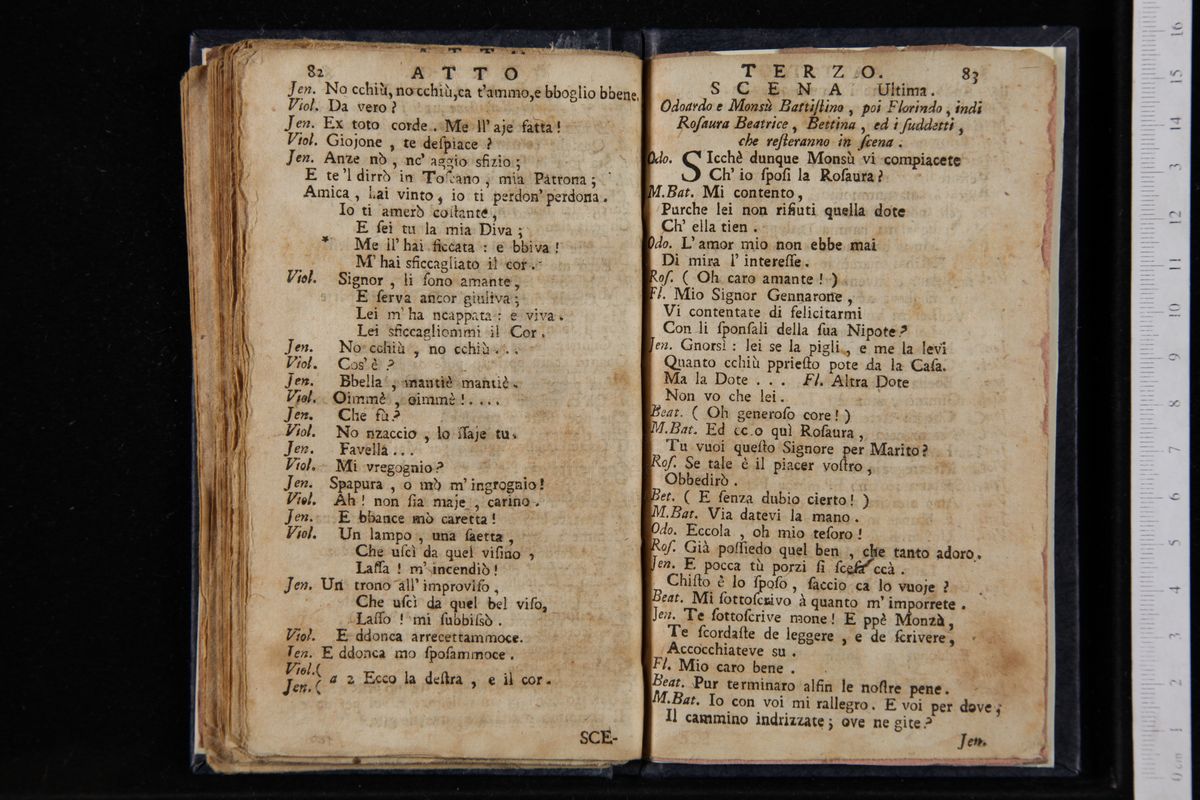 82 ATTO
Jen. No cchiù, no cchiù, ca t'ammo, e bboglio bbene.
Viol. Da vero?
Jen. Ex toto corde. Me ll' aje fatta!
Viol. Giojone, te deſpiace?
Jen. Anze nò, nc' aggio sfizio;
E te 'l dirrò in Toſcano, mia Patrona;
Amica, hai vinto, io ti perdon' perdona.
Io ti amerò coſtante,
E ſei tu la mia Diva;
* Me ll' hai ficcata: e bbiva!
M' hai sficcagliato il cor.
Viol. Signor, li ſono amante,
E ſerva ancor giuliva;
Lei m' ha ncappata: e viva.
Lei sficcagliommi il Cor.
Jen. No cchiù, no cchiù...
Viol. Cos' è?
Jen. Bbella, mantiè mantiè.
Viol. Oimmè, oimmè!....
Jen. Che fù?
Viol. No nzaccio, lo ſſaje tu.
Jen. Favella...
Viol. Mi vregognio?
Jen. Spapura, o mò m' ingrognio!
Viol. Ah! non ſia maje, carino.
Jen. E bbance mò caretta!
Viol. Un lampo, una ſaetta,
Che uſcì da quel viſino,
Laſſa! m' incendiò!
Jen. Un trono all' improviſo,
Che uſcì da quel bel viſo,
Laſſo! mi ſubbiſsò.
Viol. E ddonca arrecettammoce.
Jen. E ddonca mo ſpoſammoce.
Viol.(
Jen.( a 2 Ecco la deſtra, e il cor.
SCE-
TERZO. 83
SCENA Ultima.
Odoardo e Monsù Battiſtino, poi Florindo, indi
Roſaura Beatrice, Bettina, ed i ſuddetti,
che reſteranno in ſcena.
Odo. SIcchè dunque Monsù vi compiacete
Ch' io ſpoſi la Roſaura?
M.Bat. Mi contento,
Purche lei non rifiuti quella dote
Ch' ella tien.
Odo. L' amor mio non ebbe mai
Di mira l' intereſſe.
Roſ. ( Oh caro amante! )
Fl. Mio Signor Gennarone,
Vi contentate di felicitarmi
Con li ſponſali della ſua Nipote?
Jen. Gnorsì: lei se la pigli, e me la levi
Quanto cchiù pprieſto pote da la Caſa.
Ma la Dote... Fl. Altra Dote
Non vo che lei.
Beat. ( Oh generoſo core! )
M.Bat. Ed ecco quì Roſaura,
Tu vuoi queſto Signore per Marito?
Roſ. Se tale è il piacer voſtro,
Obbedirò.
Bet. ( E ſenza dubio cierto! )
M.Bat. Via datevi la mano.
Odo. Eccola, oh mio teſoro!
Roſ. Già poſſiedo quel ben, che tanto adoro.
Jen. E pocca tù porzi ſi ſceſa ccà.
Chiſto è lo ſpoſo, ſaccio ca lo vuoje?
Beat. Mi ſottoſcrivo à quanto m' imporrete.
Jen. Te ſottoſcrive mone! E ppè Monzà,
Te ſcordaſte de leggere, e de ſcrivere,
Accocchiateve su.
Fl. Mio caro bene.
Beat. Pur terminaro alfin le noſtre pene.
M.Bat. Io con voi mi rallegro. E voi per dove;
Il cammino indrizzate; ove ne gite?
Jen.